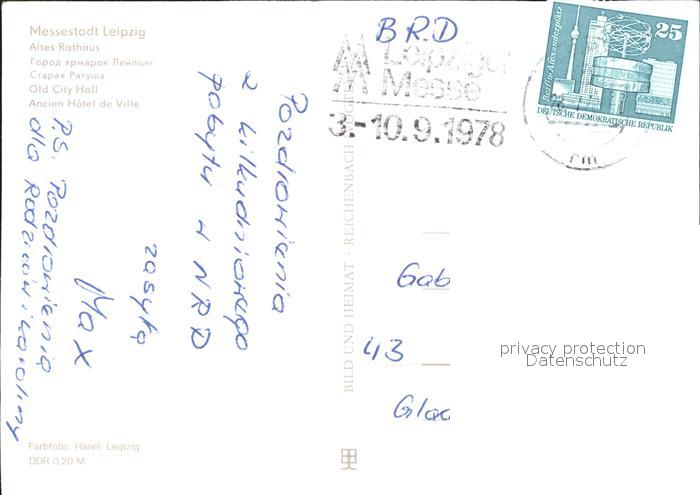 Messestadt Leipzig
Altes Rathaus
Город ярмарок Лейпциг
Старая Ратуша
Old City Hall
Ancien Hôtel de Ville
Pozdrowienia
z kilkudniowego
pobytu w NRD
zasyła
Max
P.S. Pozdrowienia
dla Rodziców i Karoliny
Farbfoto: Hänel, Leipzig
DDR 0,20 M
BILD UND HEIMAT · REICHENBACH
BRD
Leipziger
Messe
3.-10.9.1978
25
Berlin-Alexanderplatz
DEUTSCHE DEMOKRATISCHE REPUBLIK
Gab
43
Glad
privacy protection
Datenschutz